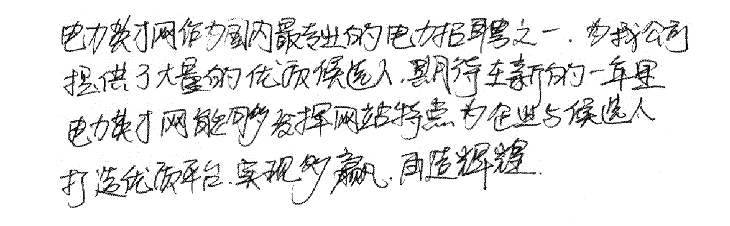 电力英才网作为国内最专业的电力招聘之一，为我公司
提供了大量的优质候选人，期待在新的一年里
电力英才网能够发挥网站特点，为企业与候选人
打造优质平台，实现多赢，再造辉煌。